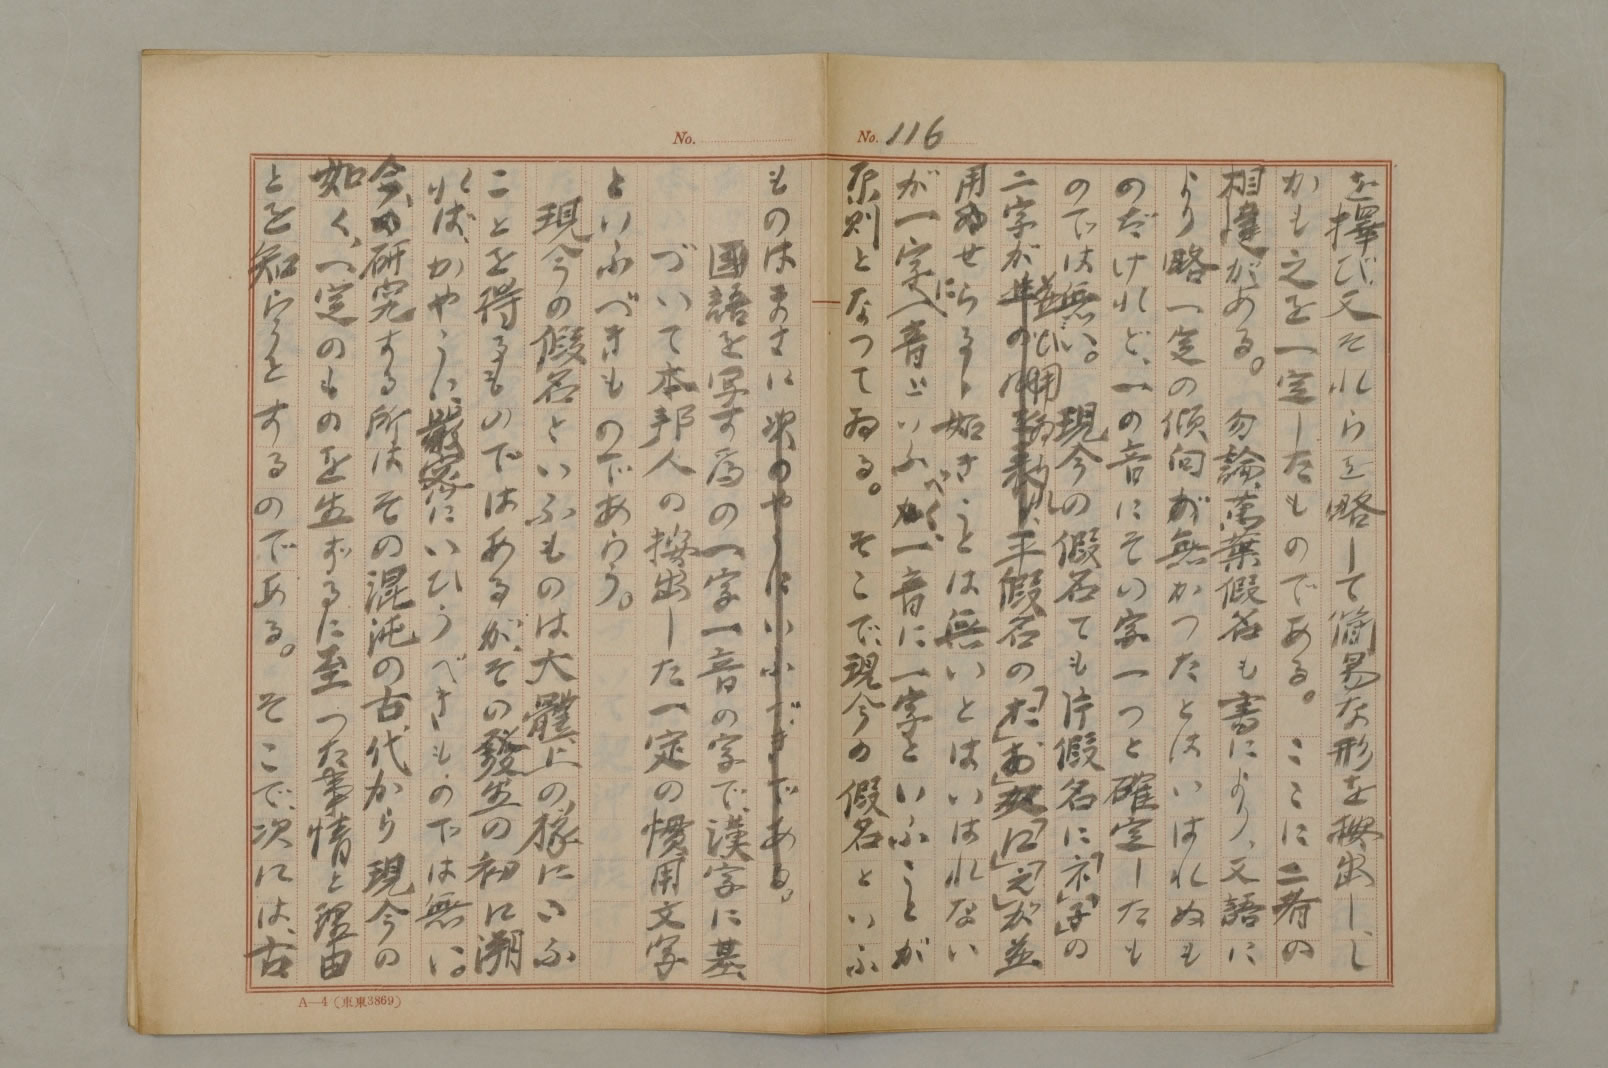 No. 116
を擇び、又それらを略して簡易な形を按出し、し
かも之を一定したものである。ここに二者の
相違がある。勿論萬葉假名も書により、又語に
より略一定の傾向が無かつたとはいはれぬも
のだけれど、一の音にその字一つと確定したも
のでは無い。現今の假名ても片假名に「ネ」「子」の
二字が並び用ゐられ、平假名の「た」お「」が並
用せらるゝ如きことは無いとはいはれない
が一字に一音といふべく、一音に一字といふことが
原則となつてゐる。そこで、現今の假名といふ
No.
ものはまさに次のやうにいふべきである。
國語を写す爲の一字一音の字で、漢字に基
づいて本邦人の按出した一定の慣用文字
といふべきものであらう。
現今の假名といふものは大體上の様にいふ
ことを得るものではあるが、その發生の初に溯
れば、かやうに嚴密にいひうべきものでは無い。
今、研究する所はその混沌の古代から現今の
如く、一定のものを生ずるに至つた事情と理由
とを知らうとするのである。そこで、次には、古
A—4（東東3869）